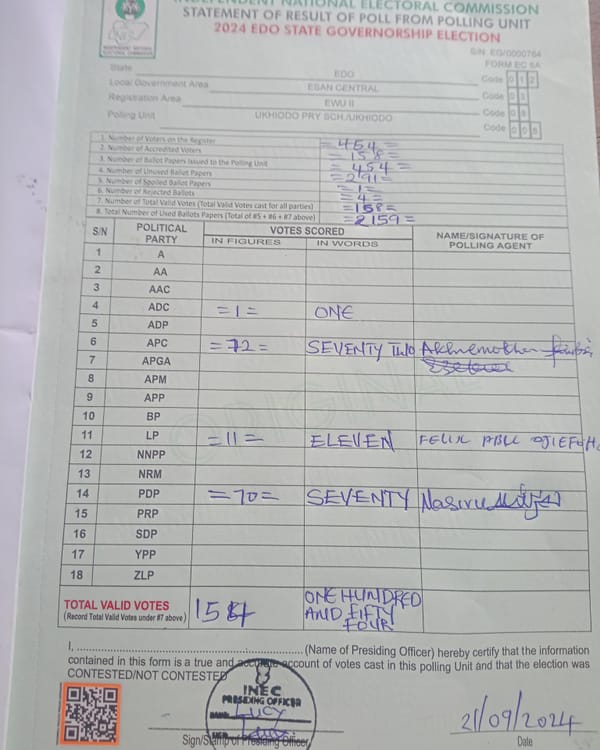 INDEPENDENT NATIONAL ELECTORAL COMMISSION
STATEMENT OF RESULT OF POLL FROM POLLING UNIT
2024 EDO STATE GOVERNORSHIP ELECTION
S/N: EG/0000764
FORM EC 8A
State EDO Code 0 1 2
Local Government Area ESAN CENTRAL Code
Registration Area EWU II Code
Polling Unit UKHIODO PRY SCH./UKHIODO Code
1. Number of Voters on the Register =454=
2. Number of Accredited Voters =158=
3. Number of Ballot Papers Issued to the Polling Unit =454=
4. Number of Unused Ballot Papers
5. Number of Spoiled Ballot Papers =1=
6. Number of Rejected Ballots =4=
7. Number of Total Valid Votes (Total Valid Votes cast for all parties) =158=
8. Total Number of Used Ballots Papers (Total of #5 + #6 + #7 above)
S/N POLITICAL PARTY VOTES SCORED NAME/SIGNATURE OF POLLING AGENT
IN FIGURES IN WORDS
1 A
2 AA
3 AAC
4 ADC =1= ONE
5 ADP
6 APC =72= SEVENTY TWO
7 APGA
8 APM
9 APP
10 BP
11 LP =11= ELEVEN FELIX
12 NNPP
13 NRM
14 PDP =70= SEVENTY Nasiru
15 PRP
16 SDP
17 YPP
18 ZLP
TOTAL VALID VOTES
(Record Total Valid Votes under #7 above)
ONE HUNDRED
AND FIFTY
FOUR
I, (Name of Presiding Officer) hereby certify that the information
contained in this form is a true and accurate account of votes cast in this polling Unit and that the election was
CONTESTED/NOT CONTESTED
INEC
PRESIDING OFFICER
LUCY
Sign/Stamp of Presiding Officer
21/09/2024
Date